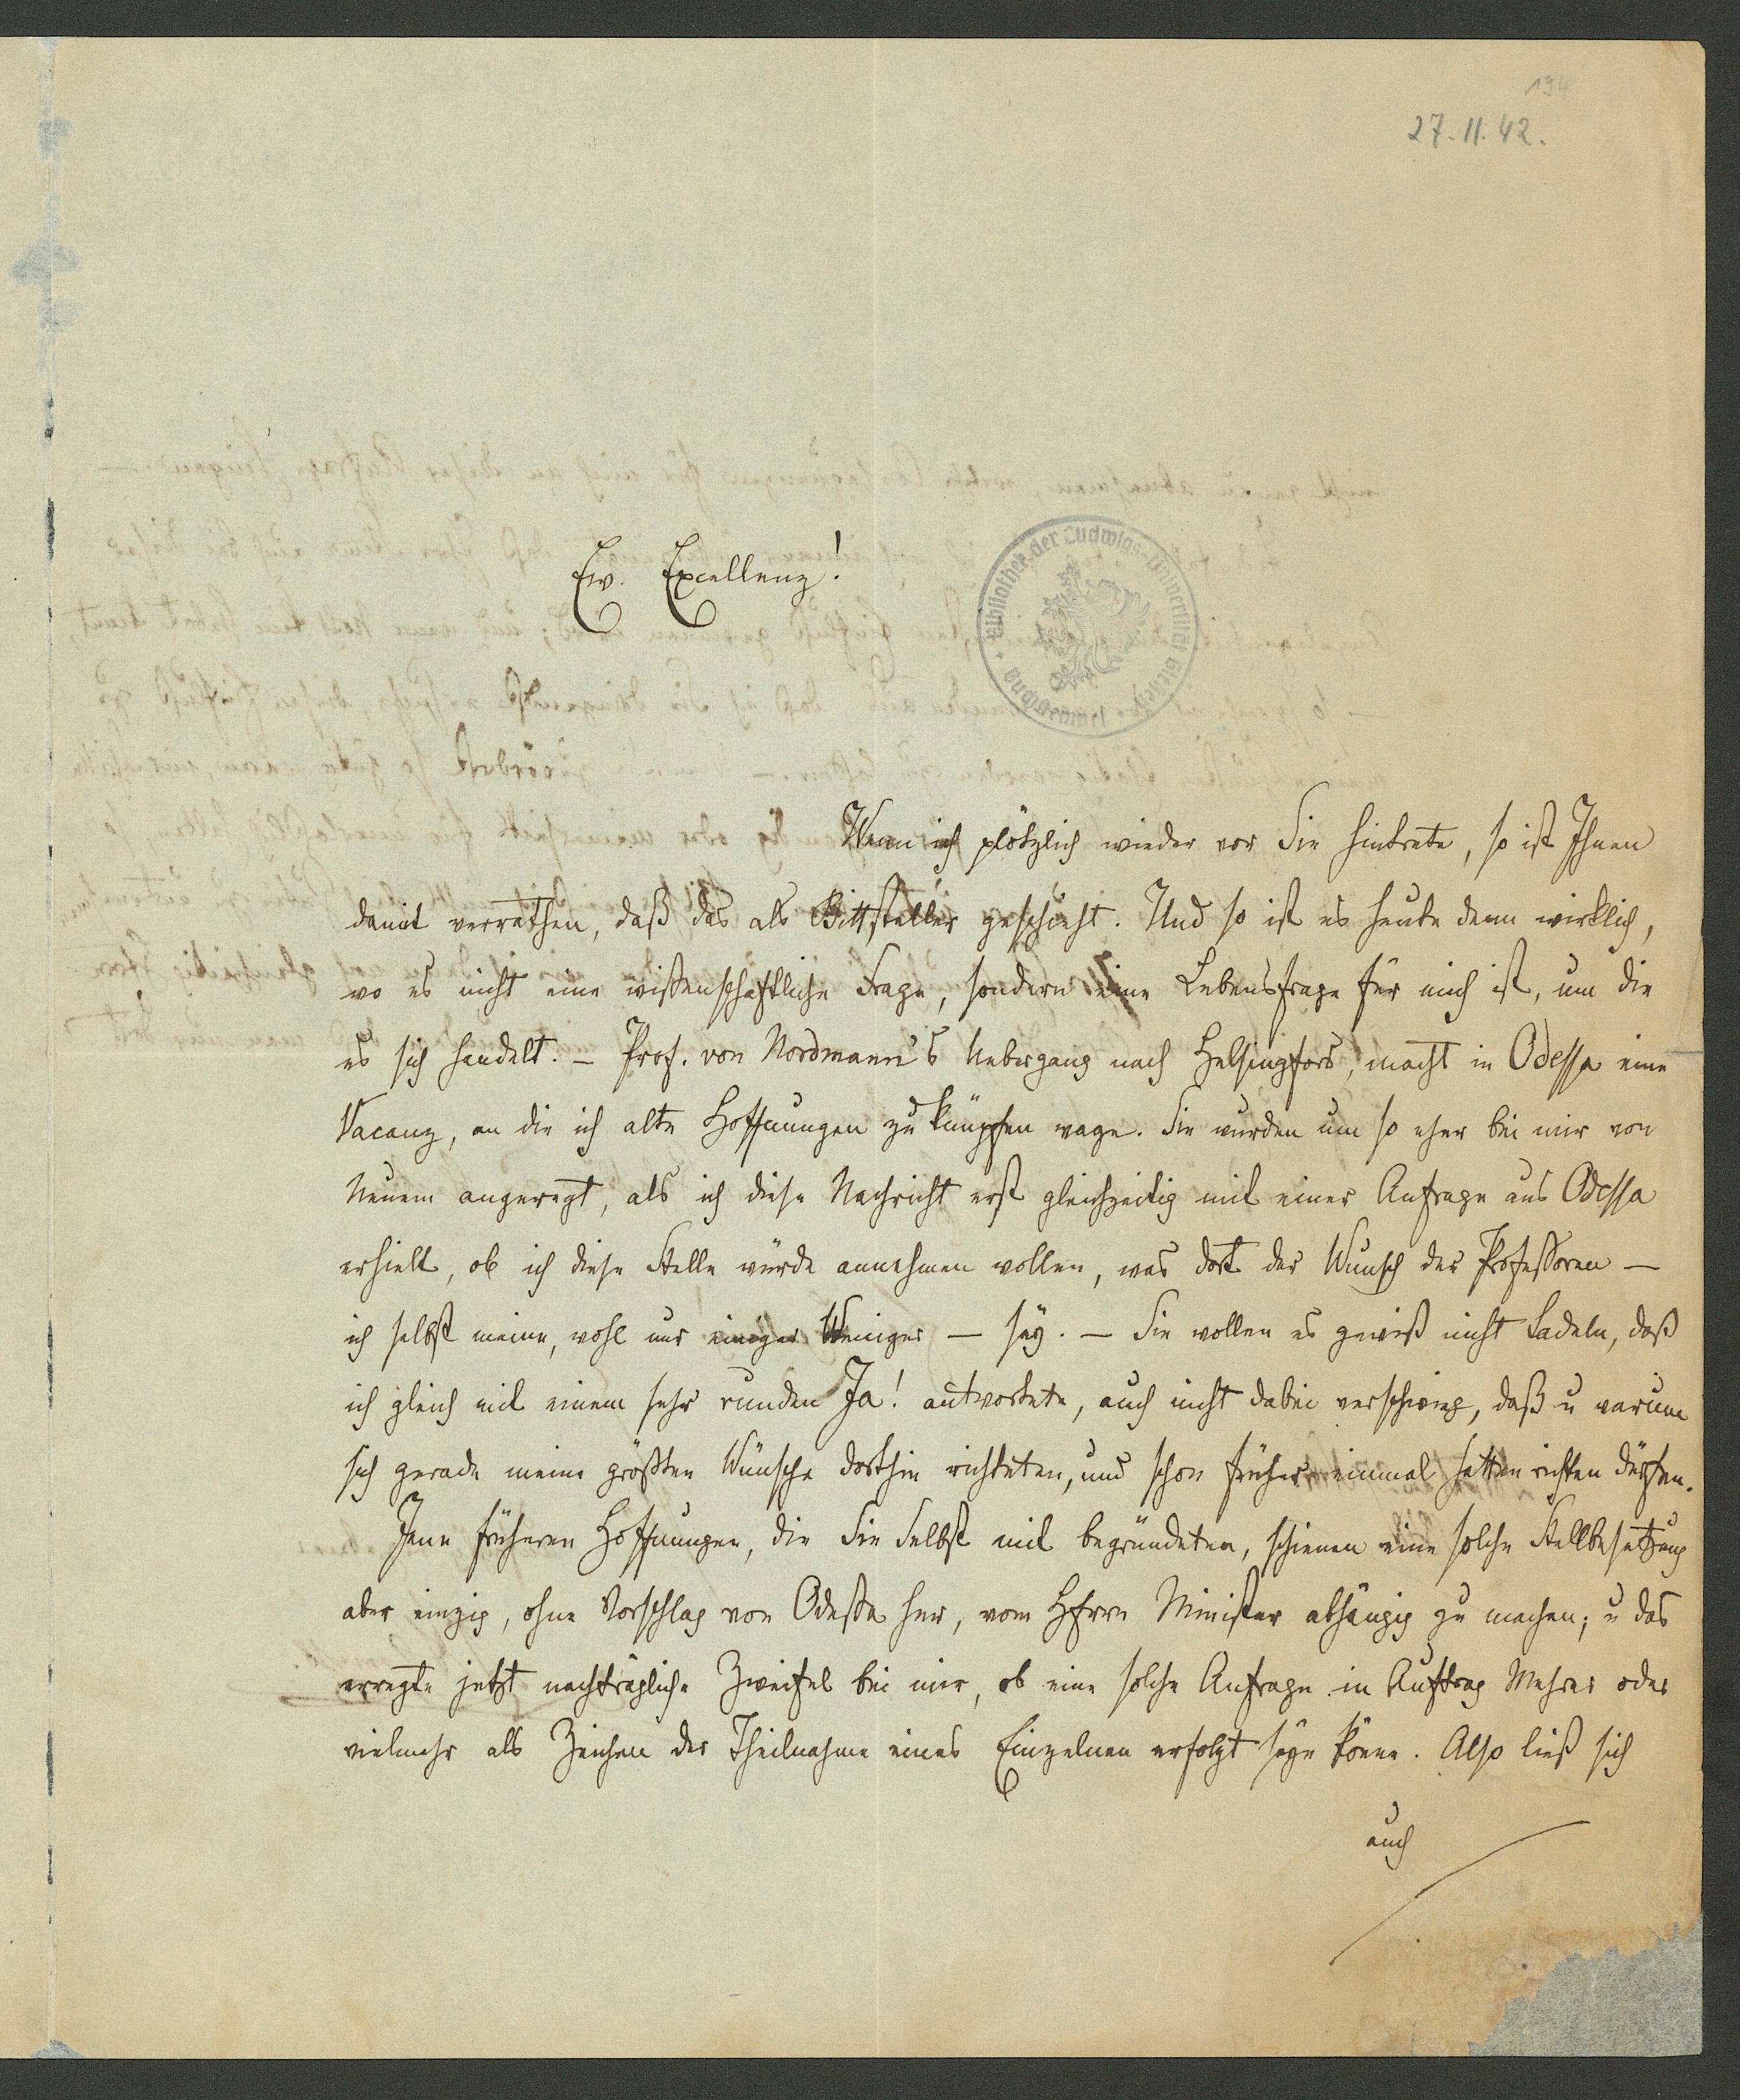 194
27.11.42.
Ew. Excellenz!
Bibliothek der Ludwigs-Universität Giessen
Wenn ich plötzlich wieder vor Sie hintrete, so ist Ihnen
damit verrathen, daß das als Bittsteller geschieht. Und so ist es heute denn wirklich,
wo es nicht eine wißenschaftliche Frage, sondern eine Lebensfrage für mich ist, um die
es sich handelt. – Prof. von Nordmann's Uebergang nach Helsingfors, macht in Odessa eine
Vacanz, an die ich alte Hoffnungen zu knüpfen wage. Sie wurden um so eher bei mir von
Neuem angeregt, als ich diese Nachricht erst gleichzeitig mit einer Anfrage aus Odessa
erhielt, ob ich diese Stelle würde annehmen wollen, was dort der Wunsch der Profeßoren –
ich selbst meine, wohl nur einiger Weniger – sey. – Sie wollen es gewiß nicht tadeln, daß
ich gleich mit einem sehr runden Ja! antwortete, auch nicht dabei verschwieg, daß u warum
sich gerade meine größten Wünsche dorthin richteten, und schon früher einmal hatten richten dürfen.
Jene früheren Hoffnungen, die Sie selbst mit begründeten, schienen eine solche Stellbesetzung
aber einzig, ohne Vorschlag von Odeßa her, vom Herrn Minister abhängig zu machen; u das
erregte jetzt nachträgliche Zweifel bei mir, ob eine solche Anfrage in Auftrag Mehrer oder
vielmehr als Zeichen der Theilnahme eines Einzelnen erfolgt seyn könne. Also ließ sich
auch